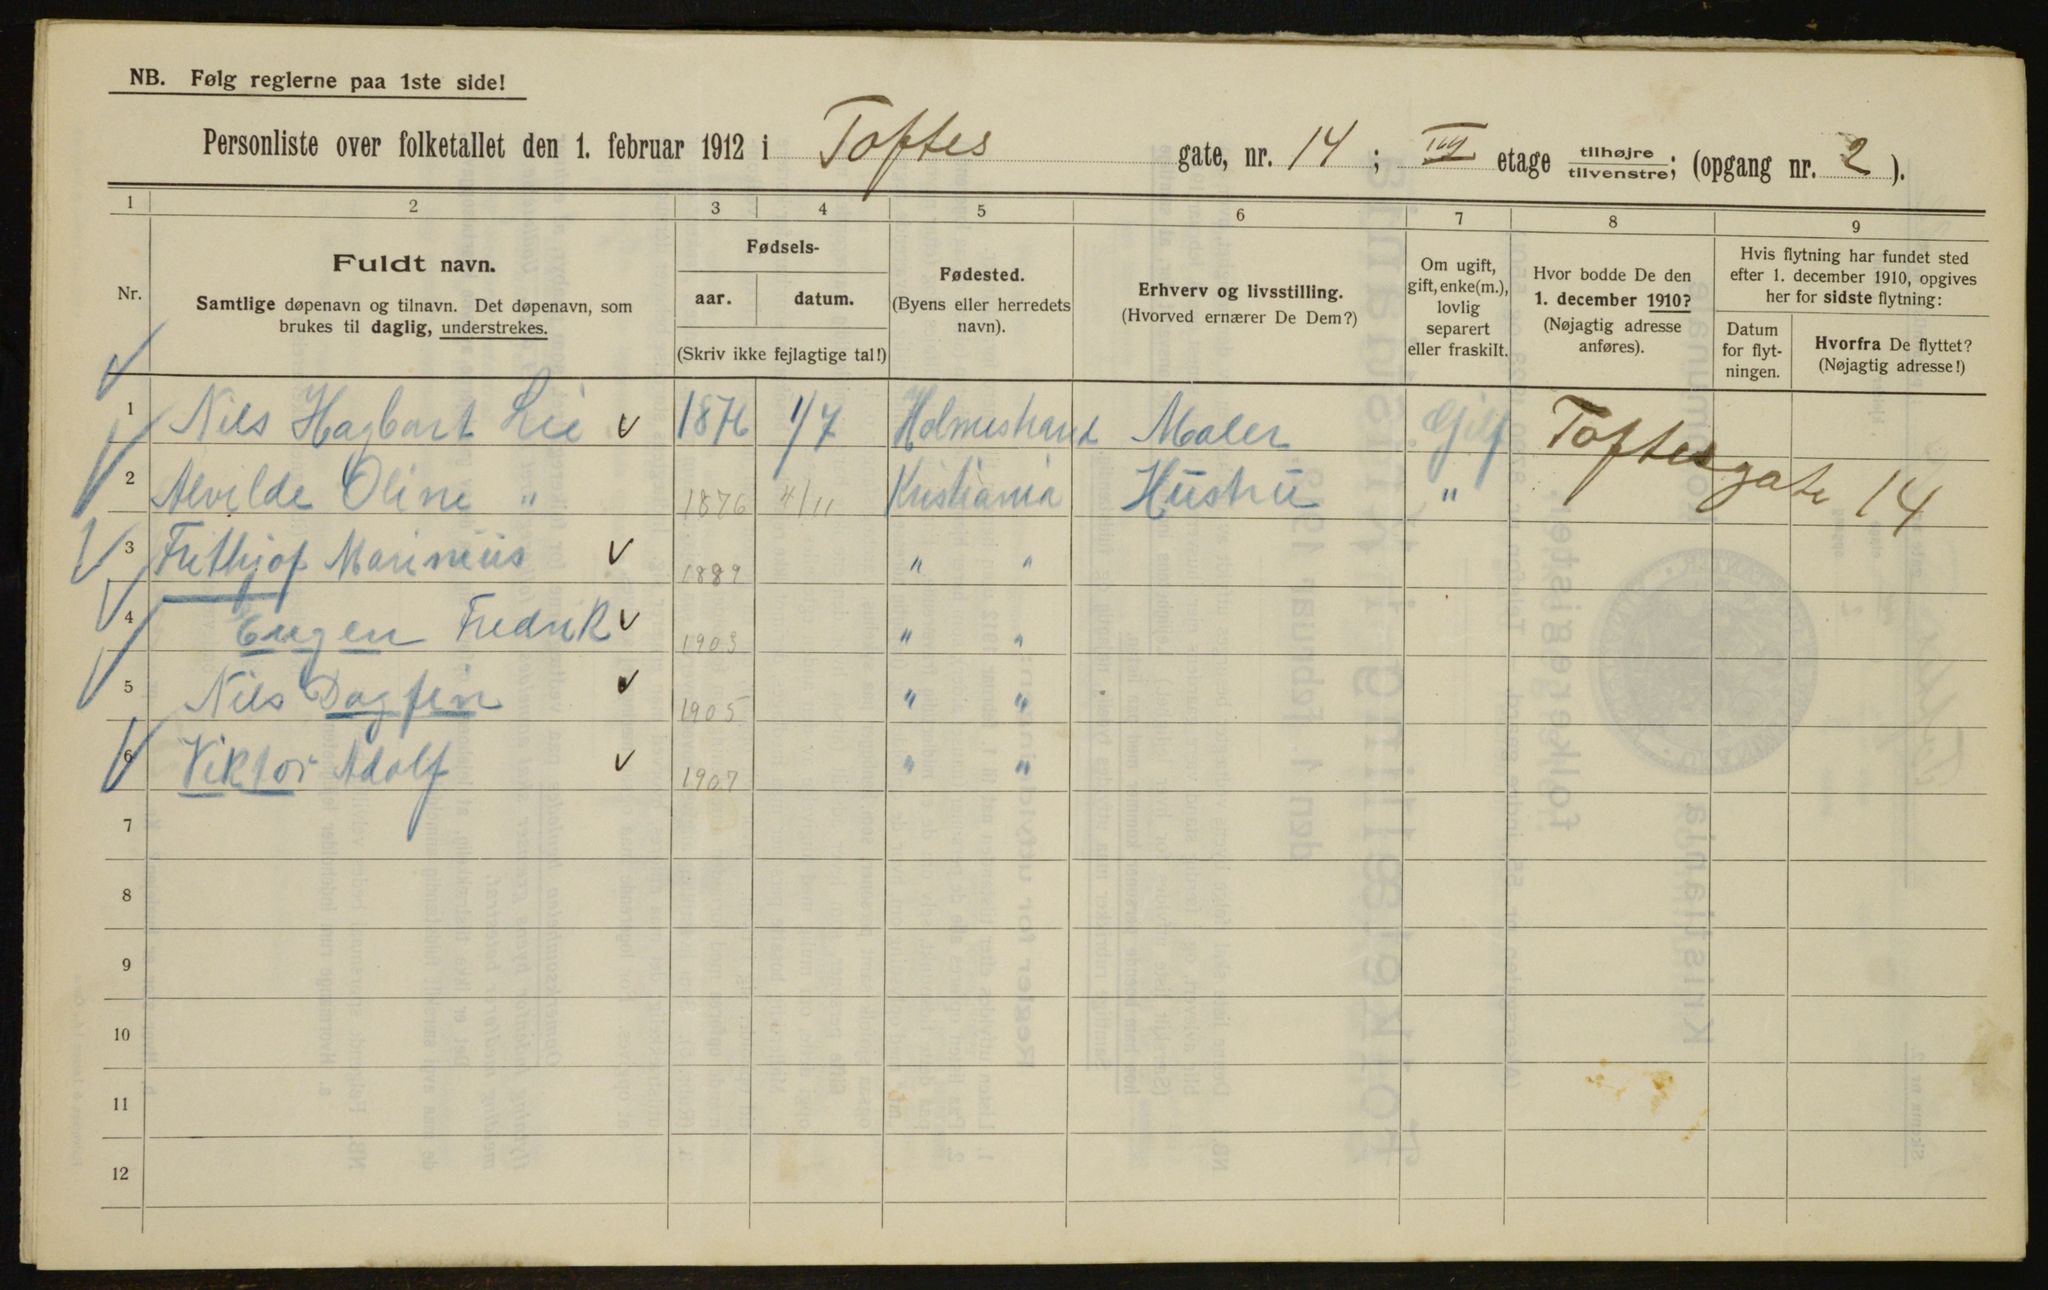 NB. Følg reglerne paa 1ste side!
Personliste over folketallet den 1. februar 1912 i Toftes gate, nr. 14; etage tilhøjre tilvenstre; (opgang nr. 2).
1 2 3 4 5 6 7 8 9
Nr.
Fuldt navn.
Samtlige døpenavn og tilnavn. Det døpenavn, som
brukes til daglig, understrekes.
Fødsels-
aar. datum.
(Skriv ikke fejlagtige tal!)
Fødested.
(Byens eller herredets
navn).
Erhverv og livsstilling.
(Hvorved ernærer De Dem?)
Om ugift,
gift, enke(m.),
lovlig
separert
eller fraskilt.
Hvor bodde De den
1. december 1910?
(Nøjagtig adresse
anføres).
Hvis flytning har fundet sted
efter 1. december 1910, opgives
her for sidste flytning:
Datum
for flyt-
ningen.
Hvorfra De flyttet?
(Nøjagtig adresse!)
1 Nils Hagbart Lie 1876 1/7 Holmestrand Maler Gift Toftesgate 14
2 Alvilde Oline " 1876 4/11 Kristiania Hustru "
3 Frithjof Marinius 1889 " "
4 Eugen Fredrik 1903 " "
5 Nils Dagfin 1905 " "
6 Viktor Adolf 1907 " "
7
8
9
10
11
12